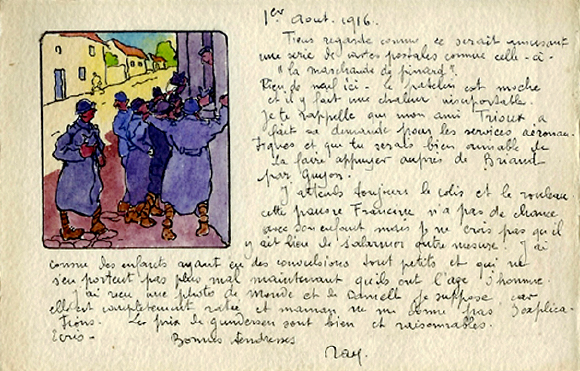 1er Aout. 1916.
Tiens regarde comme ce serait amusant
une serie de cartes postales comme celle-ci-
"la marchande de pinard".
Rien de neuf ici - le patelin est moche
et il y fait une chaleur insuportable.
Je te rappelle que mon ami Trioux a
fait sa demande pour les services aeronau-
tiques et que tu serais bien aimable de
la faire appuyer aupres de Briand
par Guyon.
J'attends toujours le colis et le rouleau
cette pauvre Francine n'a pas de chance
avec son enfant mais je ne crois pas qu'il
y ait lieu de s'alarmer outre mesure. J'ai
connu des enfants ayant eu des convulsions tout petits et qui ne
s'en portent pas plus mal maintenant qu'ils ont l'age d'homme.
J'ai reçu une photo de Monde et de je suppose car
elle est completement ratée et maman ne me donne pas d'explica-
tions. Les prix de gundersen sont bien et raisonnables.
Ecris-
Bonnes tendresses